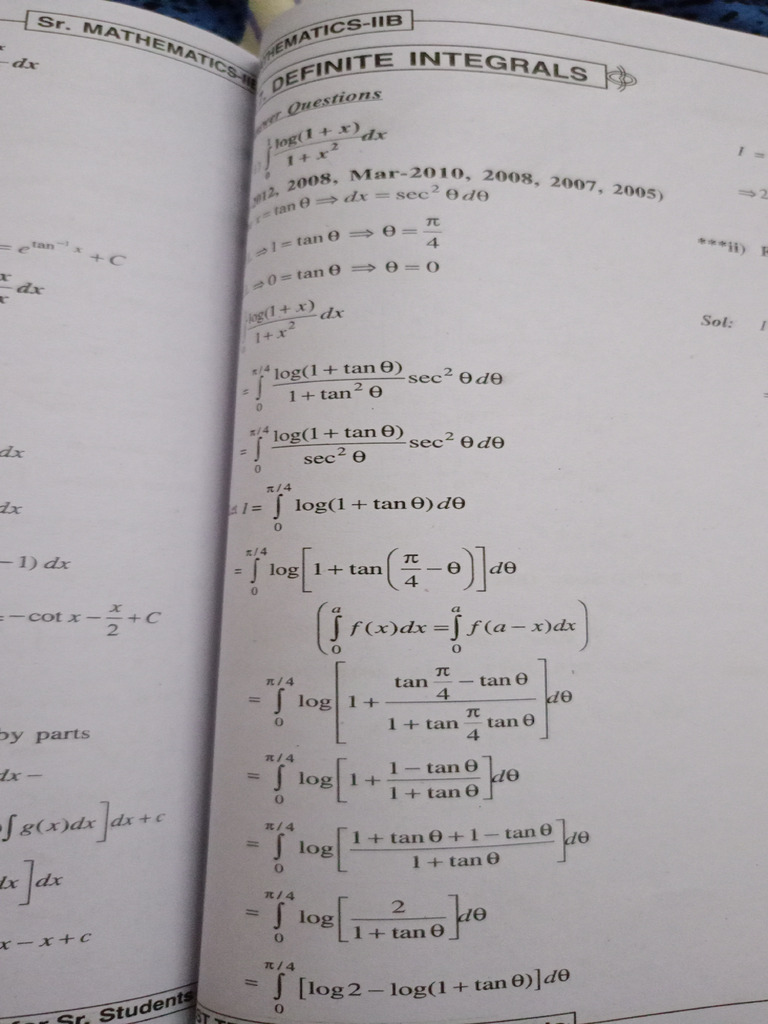 Sr. MATHEMATICS-II
dx
= e^{tan^{-1} x} + C
dx
dx
dx
– 1) dx
= – cot x – x/2 + C
by parts
dx –
∫ g(x)dx ] dx + c
dx ] dx
x – x + c
Sr. Students
HEMATICS-IIB
DEFINITE INTEGRALS
Questions
∫_0^1 log(1 + x)/(1 + x^2) dx
2012, 2008, Mar-2010, 2008, 2007, 2005)
x = tan θ ⇒ dx = sec^2 θ dθ
⇒ 1 = tan θ ⇒ θ = π/4
⇒ 0 = tan θ ⇒ θ = 0
log(1 + x)/(1 + x^2) dx
= ∫_0^{π/4} log(1 + tan θ)/(1 + tan^2 θ) sec^2 θ dθ
= ∫_0^{π/4} log(1 + tan θ)/(sec^2 θ) sec^2 θ dθ
I = ∫_0^{π/4} log(1 + tan θ) dθ
= ∫_0^{π/4} log[1 + tan(π/4 – θ)] dθ
(∫_0^a f(x)dx = ∫_0^a f(a – x)dx)
= ∫_0^{π/4} log[1 + (tan π/4 – tan θ)/(1 + tan π/4 tan θ)] dθ
= ∫_0^{π/4} log[1 + (1 – tan θ)/(1 + tan θ)] dθ
= ∫_0^{π/4} log[(1 + tan θ + 1 – tan θ)/(1 + tan θ)] dθ
= ∫_0^{π/4} log[2/(1 + tan θ)] dθ
= ∫_0^{π/4} [log 2 – log(1 + tan θ)] dθ
I =
⇒ 2
***ii)
Sol: I
=